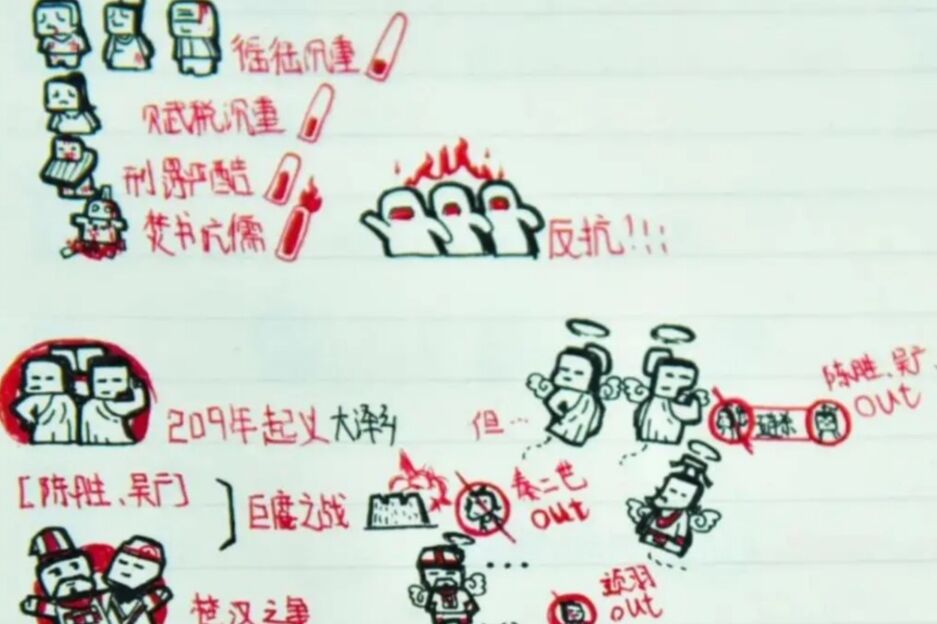 徭役沉重
赋税沉重
刑罚严酷
焚书坑儒
反抗!!!
209年起义大泽乡
但…
陈胜、吴广
out
[陈胜、吴广]
巨鹿之战
秦二世
out
楚汉之争
项羽
out